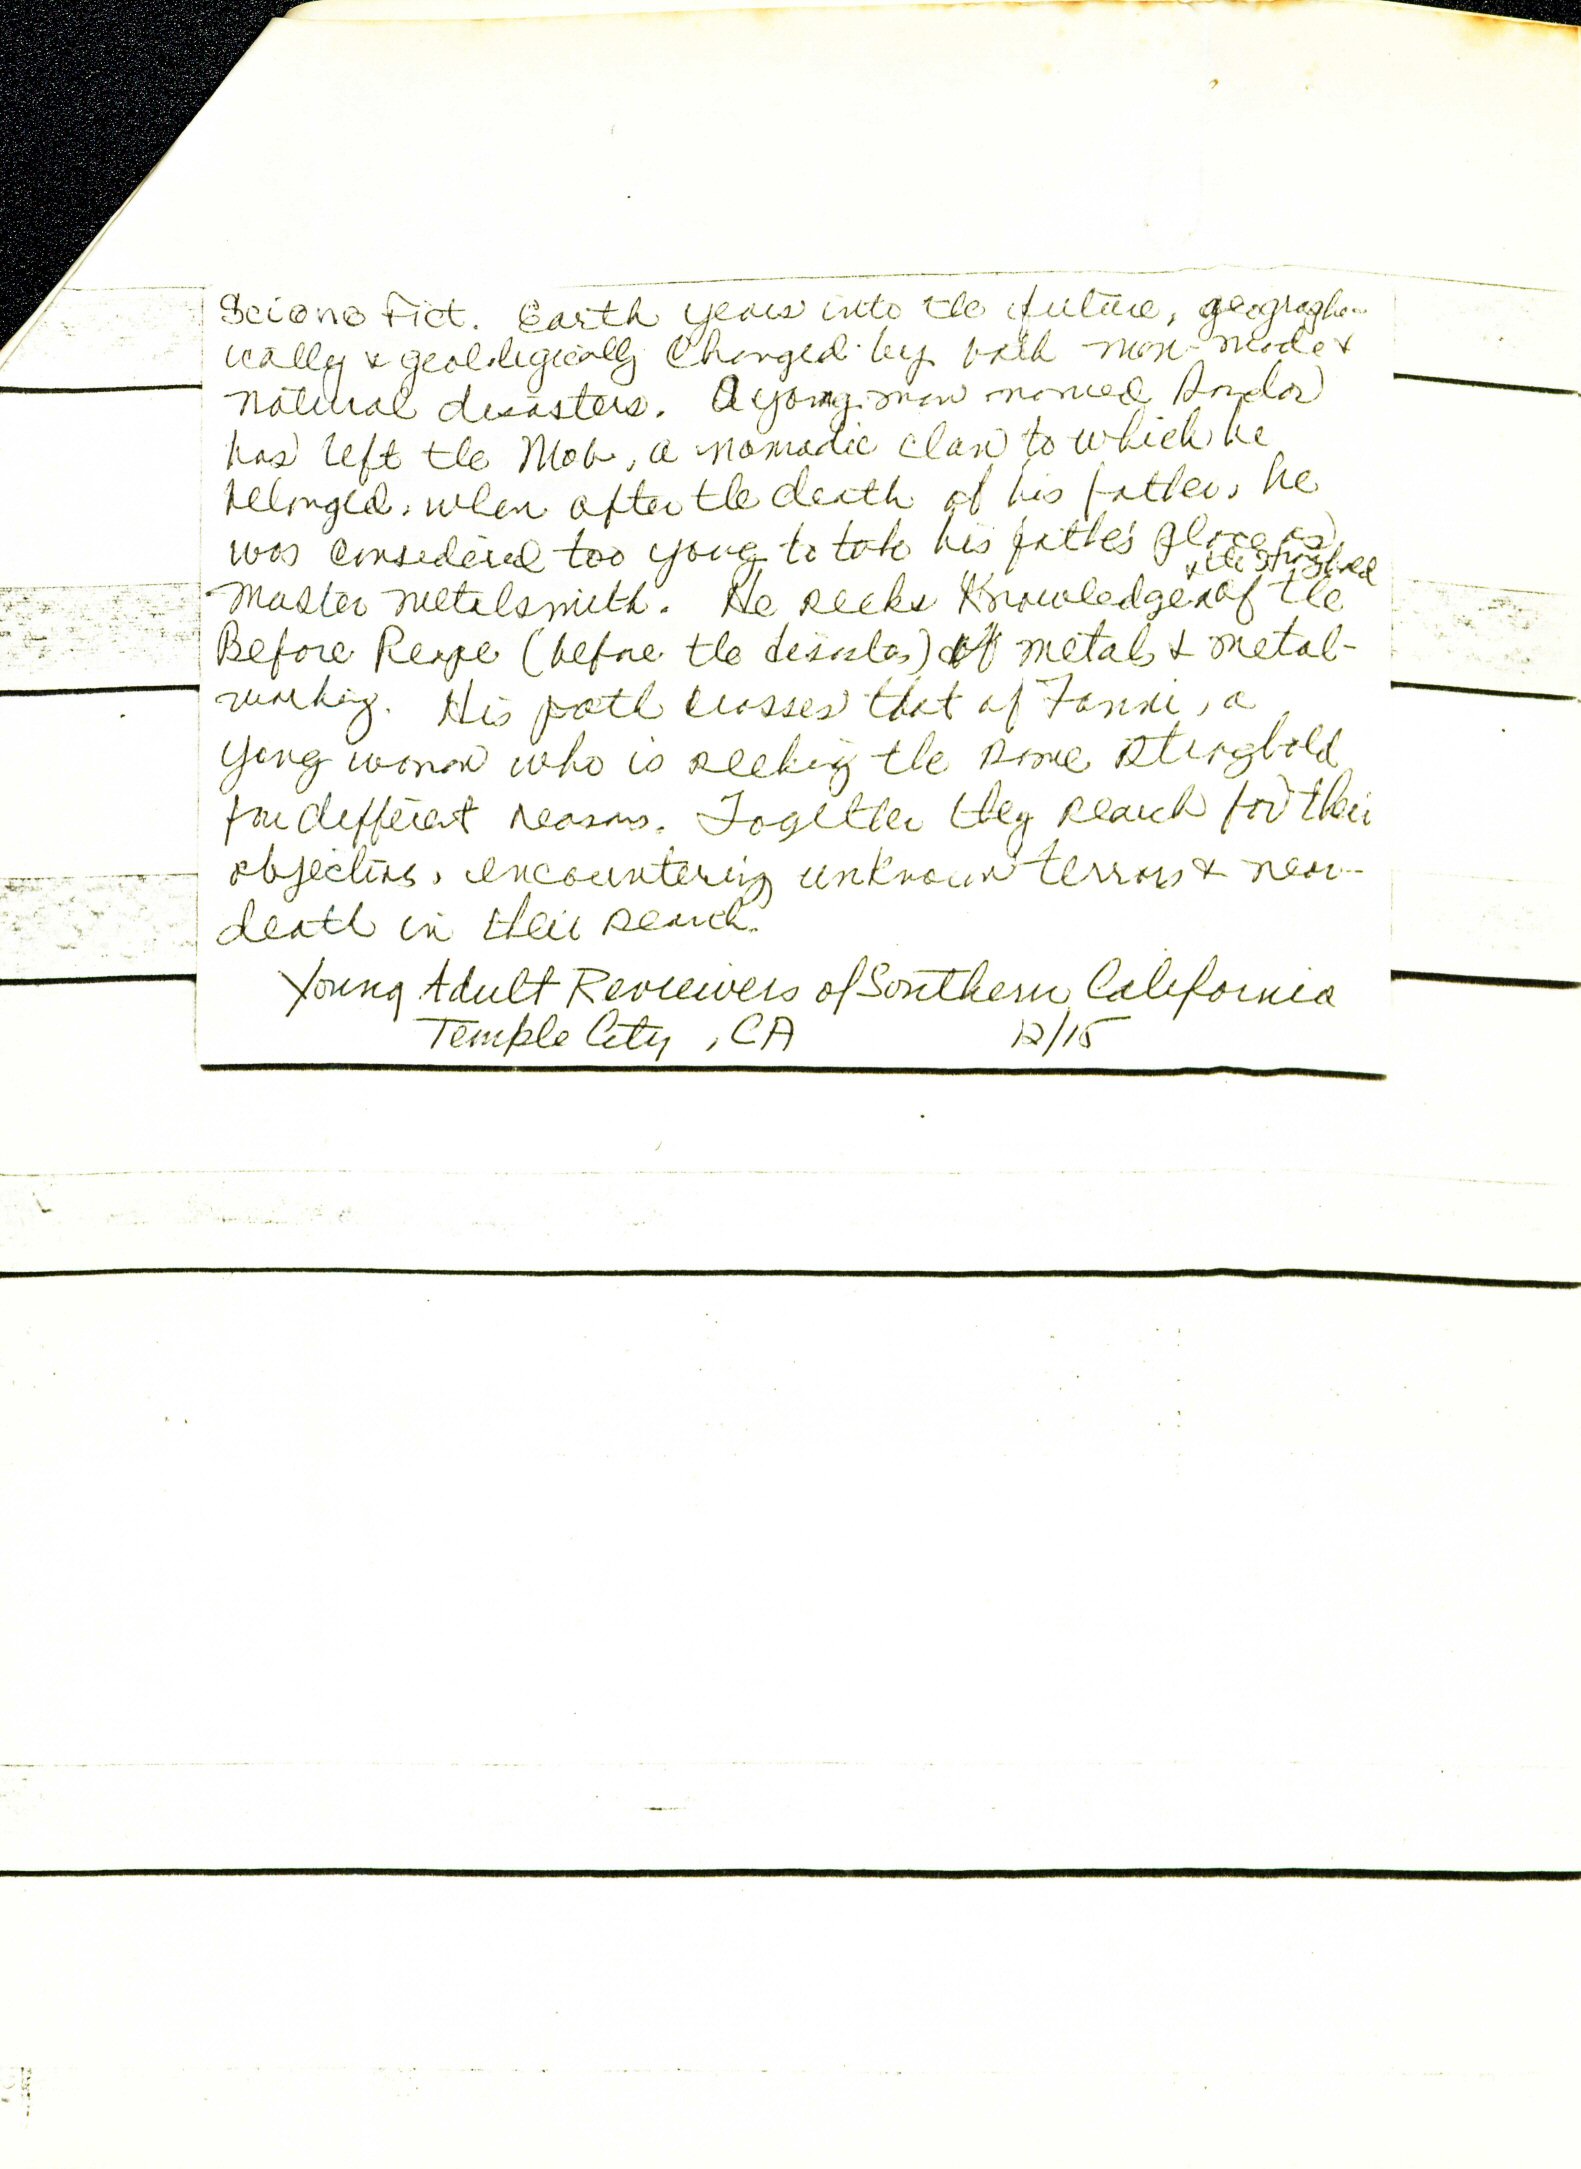 Science Fict. Earth years into the future, geograph-
ically & geologically changed by both man-made &
natural disasters. A young man named Sandor
has left the Mob, a nomadic clan to which he
belonged, when after the death of his father, he
was considered too young to take his father's place as
& the stronghold
master metalsmith. He seeks knowledge of the
Before People (before the disaster) of metals & metal-
working. His path crosses that of Fanni, a
young woman who is seeking the same stronghold
for different reasons. Together they search for their
objectives, encountering unknown terrors & near-
death in their search.
Young Adult Reviewers of Southern California
Temple City, CA 12/15